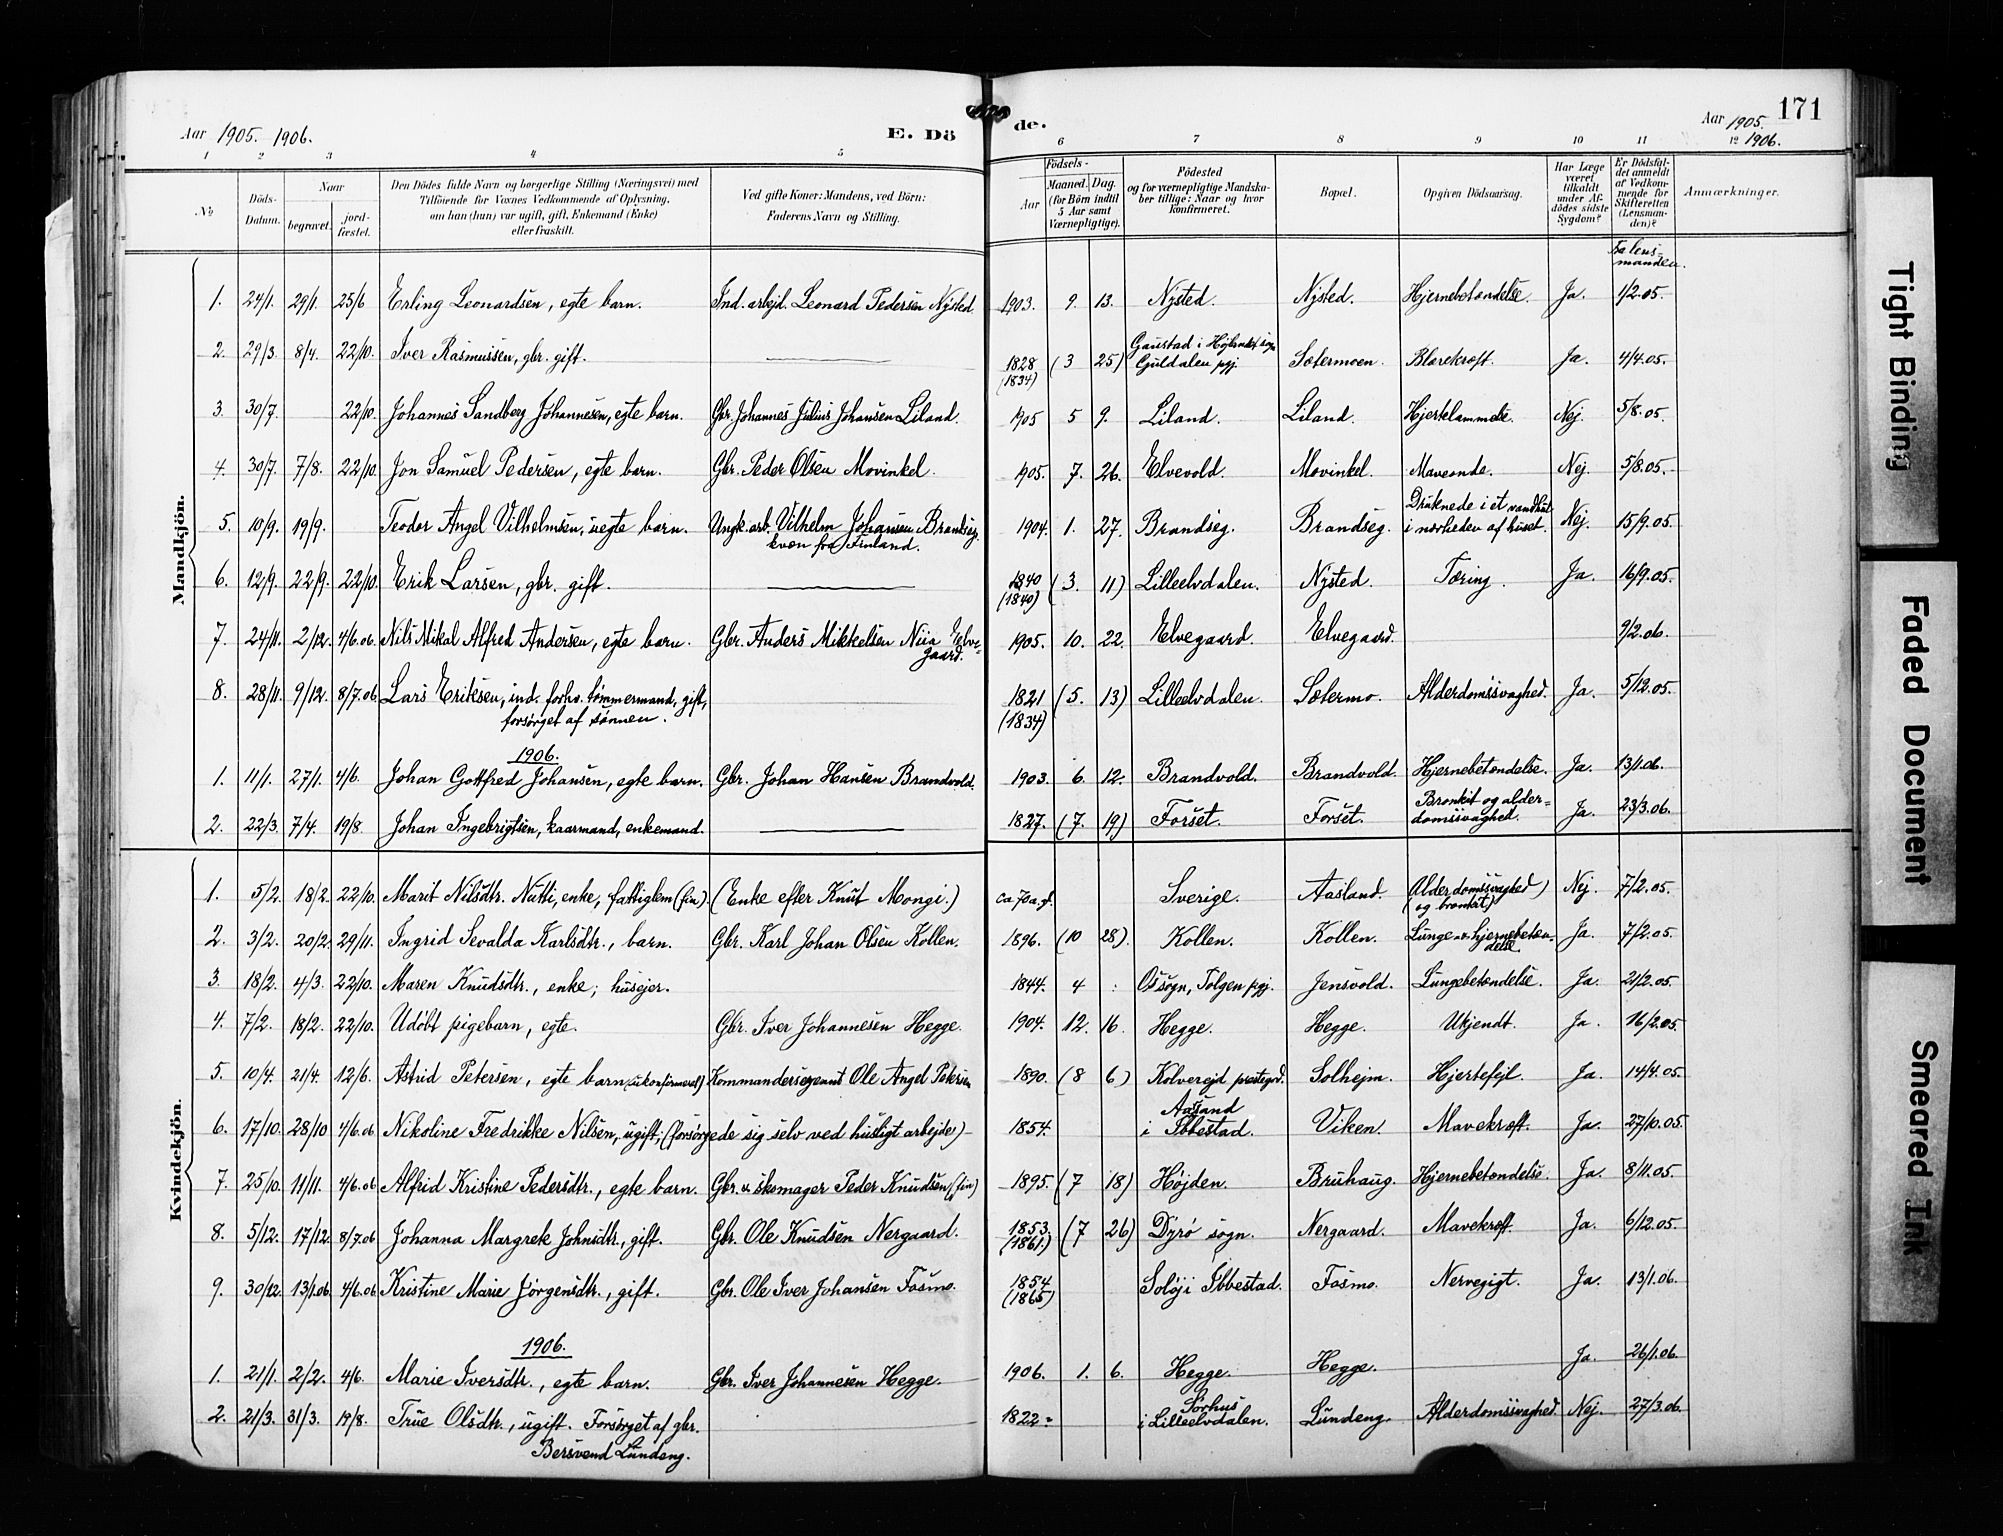 Aar 1905. 1906.
E. Dö
de.
Aar 1905. 1906.
171
1 2 3 4 5 6 7 8 9 10 11 12
№
Döds-Datum.
Naar
begravet.
jord-fæstet.
Den Dödes fulde Navn og borgerlige Stilling (Næringsvei) med
Tilföiende for Voxnes Vedkommende af Oplysning,
om han (hun) var ugift, gift, Enkemand (Enke)
eller fraskilt.
Ved gifte Koner: Mandens, ved Börn:
Faderens Navn og Stilling.
Födsels-
Aar
Maaned. Dag.
(for Börn indtil
5 Aar samt
Værnepligtige).
Födested
og for værnepligtige Mandsku-
ber tillige: Naar og hvor
konfirmeret.
Bopæl.
Opgiven Dödsaarsag.
Har Læge
været
tilkaldt
under Af-
dødes sidste
Sygdom?
Er Dödsfal-
det anmeldt
af Vedkom-
mende for
Skifteretten
(Lensman-
den)?
Anmærkninger.
Fra lens-
manden.
Mandkjön.
1. 24/1. 29/1. 25/6 Erling Leonardsen, egte barn. Ind. arbejd. Leonard Pedersen Nysted. 1903. 9. 13. Nysted. Nysted. Hjernebetændelse. Ja. 1/2.05.
2. 29/3. 8/4. 22/10. Iver Rasmussen, gbr. gift. 1828 (1834) (3 25) Gaustad i sogn Guldalen pgj. Sætermoen. Blærekræft. Ja. 4/4.05.
3. 30/7. 22/10. Johannes Sandberg Johannesen, egte barn. Gbr. Johannes Julius Johansen Liland. 1905 5 9. Liland. Liland. Hjertelammelse. Nej. 5/8.05.
4. 30/7. 7/8. 22/10. Jon Samuel Pedersen, egte barn. Gbr. Peder Olsen Movinkel. 1905. 7. 26. Elvevold. Movinkel. Maveonde. Nej. 5/8.05.
5. 10/9. 19/9. Teodor Angel Vilhelmsen, uegte barn. Ungk. arb. Vilhelm Johansen Brandseg. kvæn fra Finland. 1904. 1. 27. Brandseg. Brandseg. Druknede i et vandhul i nærheden af huset. Nej. 15/9.05.
6. 12/9. 22/9. 22/10. Erik Larsen, gbr. gift. 1840 (1840) (3. 11) Lilleelvdalen. Nysted. Tæring. Ja. 16/9.05.
7. 24/11. 2/12. 4/6.06 Nils Mikal Alfred Andersen, egte barn. Gbr. Anders Mikkelsen Niia Elve-
gaard. 1905. 10. 22. Elvegaard. Elvegaard. 9/2.06.
8. 28/11. 9/12. 8/7.06 Lars Eriksen, ind. forhv. tømmermand, gift,
forsørget af sønnen. 1821 (1834) (5. 13) Lilleelvdalen. Sætermo. Alderdomssvaghed. Ja. 5/12.05.
1906.
1. 11/1. 27/1. 4/6. Johan Gottfred Johansen, egte barn. Gbr. Johan Hansen Brandvold. 1903. 6. 12. Brandvold. Brandvold. Hjernebetændelse. Ja. 13/1.06.
2. 22/3. 7/4. 19/8. Johan Ingebrigtsen, kaarmand, enkemand. 1827. (7. 19) Forset. Forset. Bronkit og alder-
domssvaghed. Ja. 23/3.06.
Kvindekjön.
1. 5/2. 18/2. 22/10. Marit Nilsdtr. Nutti, enke, fattiglem (fin). (Enke efter Knut Mongi.) ca 70 a. gl. Sverige. Aasland. Alderdomssvaghed) (og bronkit) Nej. 7/2.05.
2. 3/2. 20/2. 29/11. Ingrid Sevalda Karlsdtr., barn. Gbr. Karl Johan Olsen Kollen. 1896. (10 28). Kollen. Kollen. Lunge- & hjernebetæn-
delse. Ja. 7/2.05.
3. 18/2. 4/3. 22/10. Maren Knudsdtr., enke; husejer. 1844. 4 : Os sogn, Tolgen pgj. Jensvold. Lungebetændelse. Ja. 21/2.05.
4. 7/2. 18/2. 22/10. Udöbt pigebarn, egte. Gbr. Iver Johannesen Hegge. 1904. 12. 16. Hegge. Hegge. Ukjendt. Ja. 16/2.05.
5. 10/4. 21/4. 12/6. Astrid Petersen, egte barn (ukonfirmeret) Kommandersergeant Ole Angel Petersen 1890. (8 6) Kolverejd prestegjed. Solhejm. Hjertefejl. Ja. 14/4.05
6. 17/10. 28/10 4/6.06 Nikoline Fredrikke Nilsen, ugift, (forsørgede sig selv ved husligt arbejde) 1854. Aasand i Ibbestad. Viken. Mavekræft. Ja. 27/10.05.
7. 25/10. 11/11. 4/6.06 Alfrid Kristine Pedersdtr., egte barn. Gbr. & skomager Peder Knudsen (fin) 1895. (7 18) Højden. Bruhaug. Hjernebetændelse. Ja. 8/11.05.
8. 5/12. 17/12. 8/7.06 Johanna Margrete Johnsdtr., gift. Gbr. Ole Knudsen Nergaard. 1853. (1861.) (7 26) Dyrø sogn. Nergaard. Mavekræft. Ja. 6/12.05.
9. 30/12. 13/1.06. 4/6.06 Kristine Marie Jørgensdtr., gift. Gbr. Ole Iver Johansen Fosmo. 1854. (1865) Soløj i Ibbestad. Fosmo. Nervegigt. Ja. 13/1.06.
1906.
1. 21/1. 2/2. 4/6. Marie Iversdtr., egte barn. Gbr. Iver Johannesen Hegge. 1906. 1. 6. Hegge. Hegge. Ja. 26/1.06.
2. 21/3. 31/3. 19/8. True Olsdtr., ugift. Forsørget af gbr.
Bersvend Lundeng. 1822. Sørhus i Lilleelvdalen. Lundeng. Alderdomssvaghed. Nej. 27/3.06.
Tight Binding
Faded Document
Smeared Ink